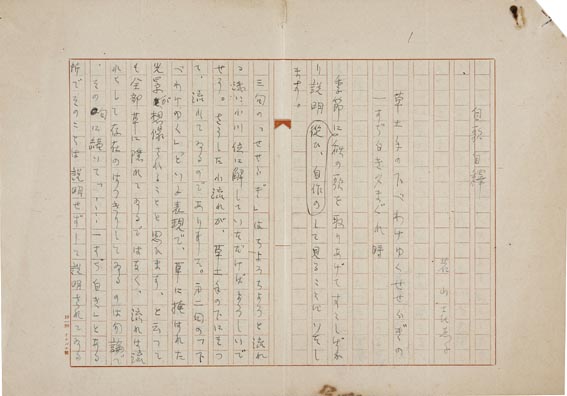 自歌自釋
草土手の下べわけゆくせせらぎの
一すぢ白き夕まぐれ時
季節に秋の歌を取りあげて、すこしばか
り説明 従ひ、自作の して見ることにいたし
ます。
三句の「せせらぎ」はちょろちょろと流れ
る浅い小川位に解していただけばよろしいで
せう。さうした小流れが、草土手の下にそつ
て、流れてゐるのでありました。第二句の「下
べわけゆく」といふ表現で、草に掩はれた
光景が想像されることと思ひます。と云つて
も全部草に隠れてゐるのではなく、流れは流
れとして存在のはつきりしてゐるのは勿論で
、その 句に続いて、「一すぢ白き」とある
所でそのことは説明せずして説明されてゐる